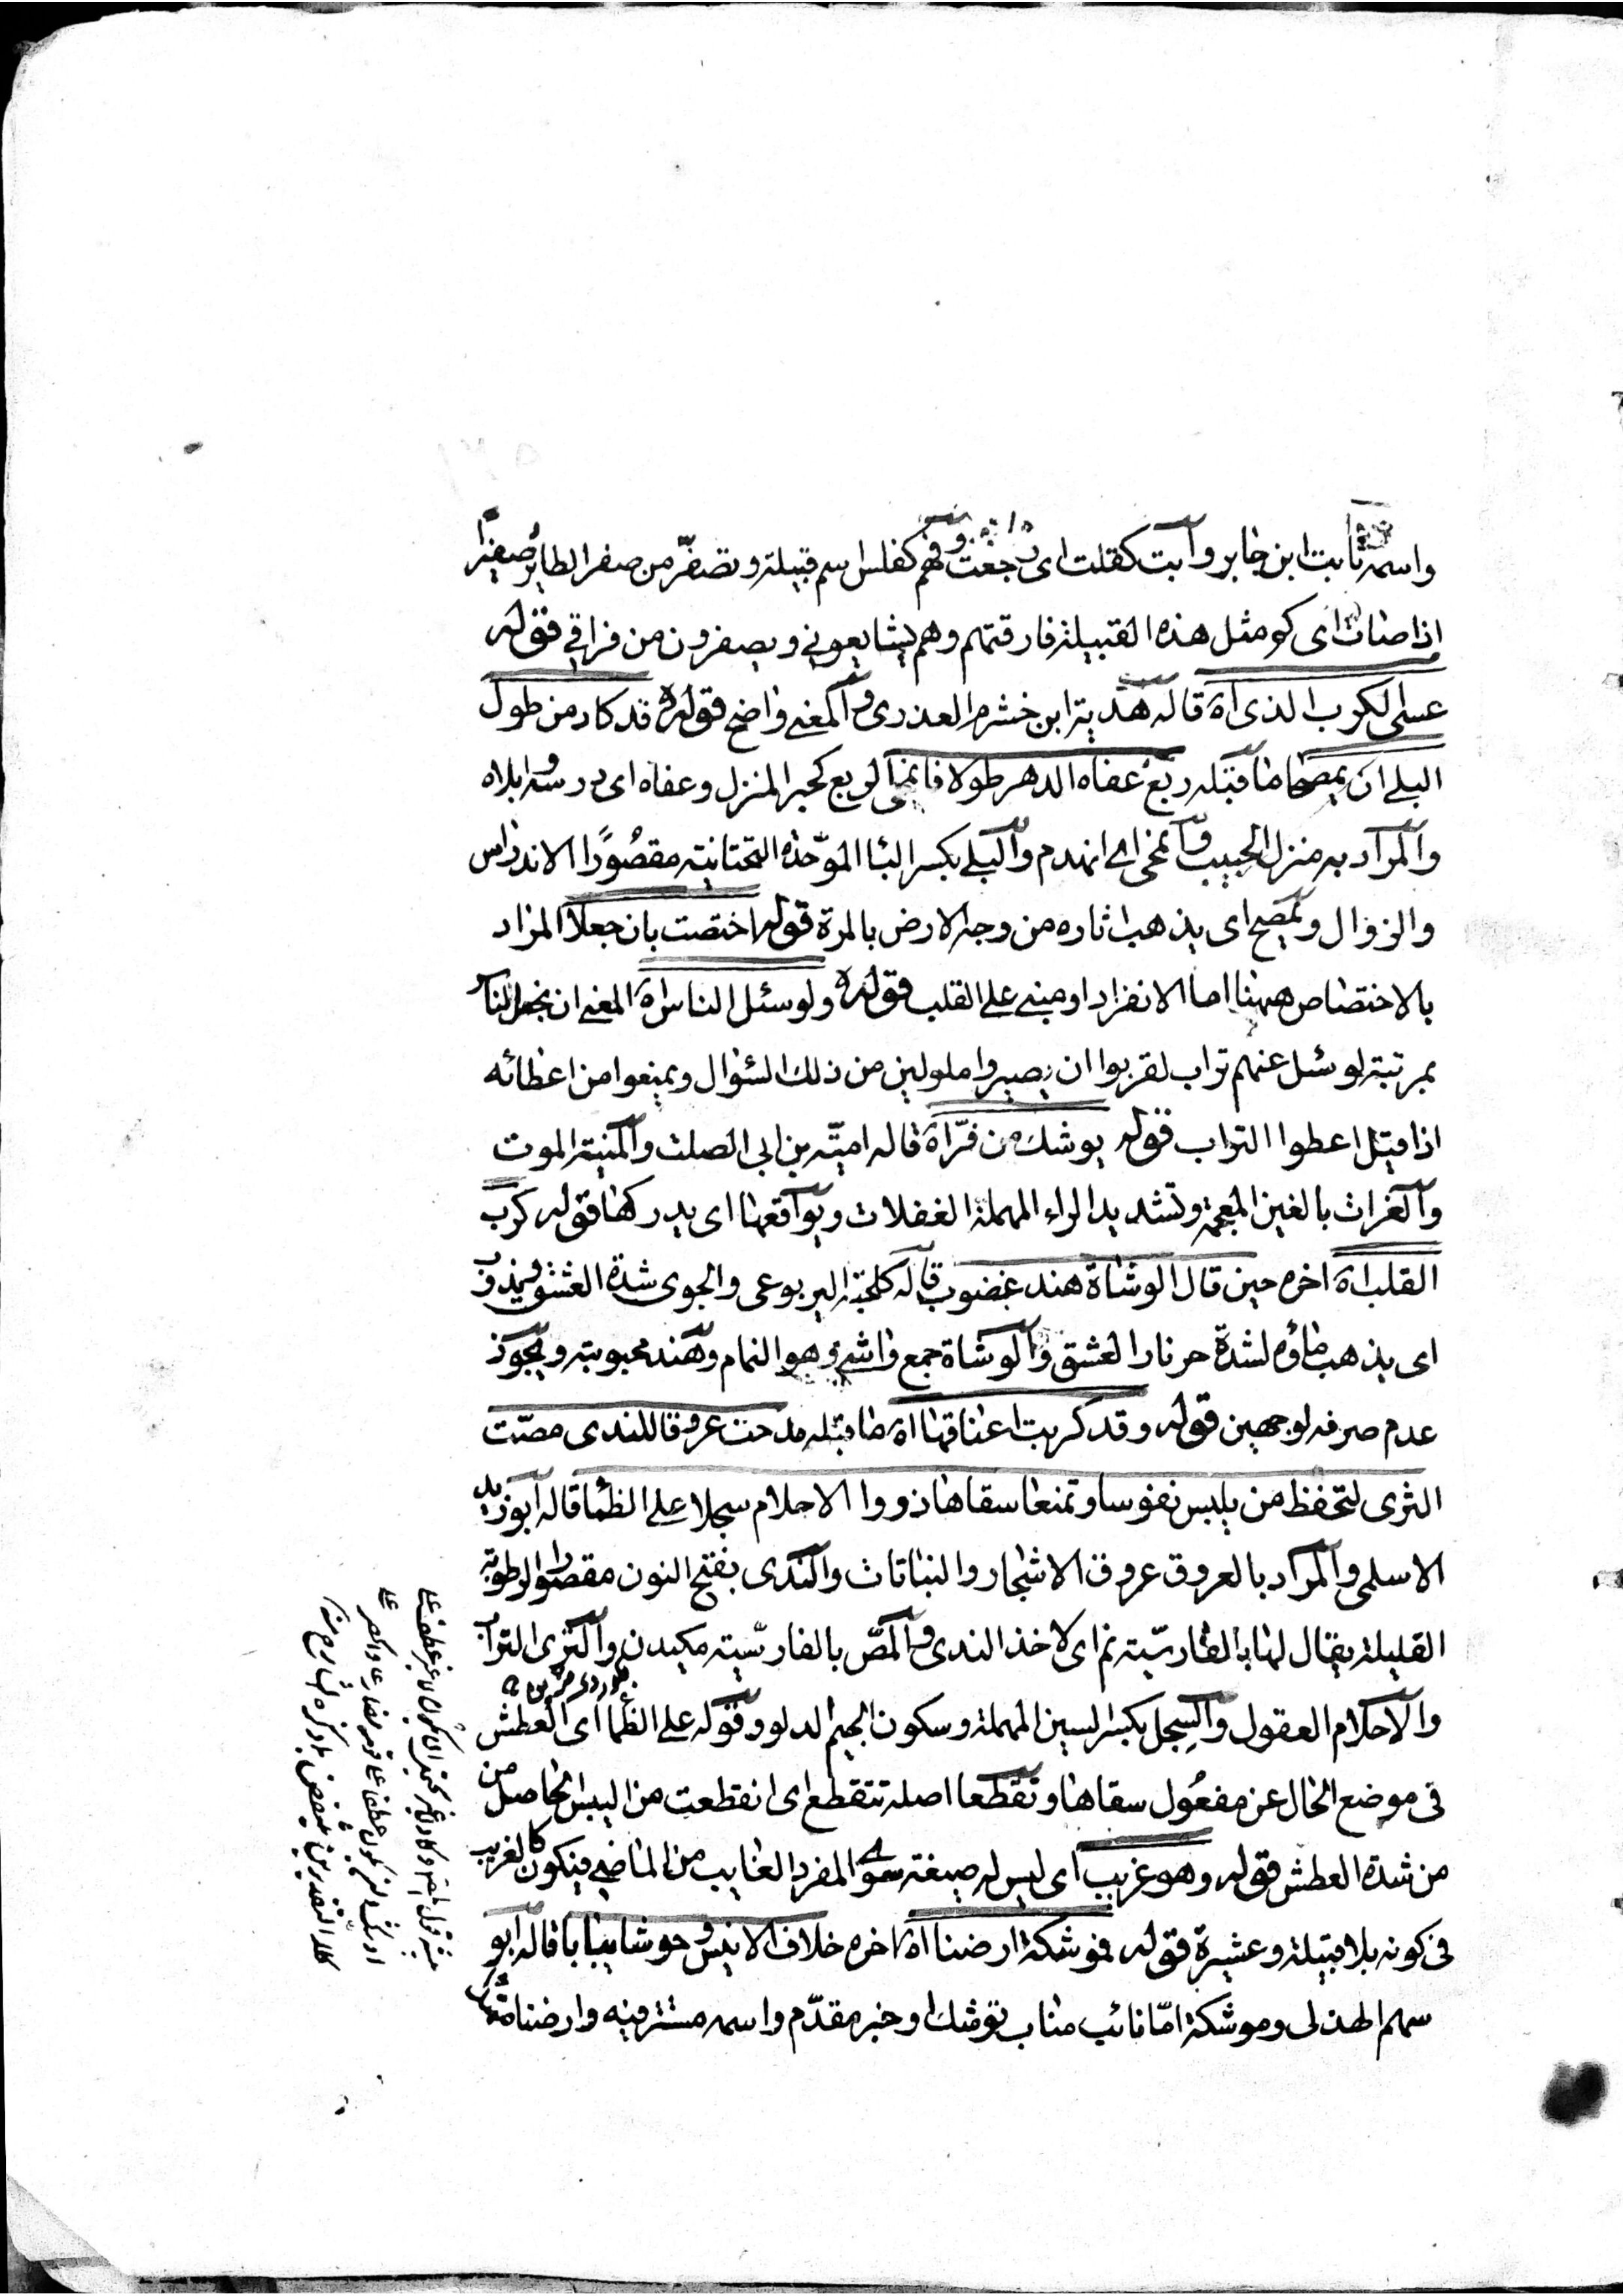 واسمه ثابت ابن جابر وابت كقلت اى رجعت وفهم كفلس اسم قبيلة وتصفّر من صفر الطائر صفيرا
اذا صات اى كو مثل هذه القبيلة فارقتهم وهم يشايعونى ويصفرون من فراقى قوله
عسى الكرب الذى اه قاله هدبة ابن خشرم العذرى والمعنى واضح قوله قد كاد من طول
البلى ان يمصحا ما قبله ربع عفاه الدهر طولا فانمحى الربع كخبر المنزل وعفاه اى درسه وابلاه
والمراد به منزل الحبيب وانمحى اى انهدم والبلى بكسر الباء الموحّدة التحتانية مقصُورًا الاندراس
والزوال ويمصح اى يذهب اثاره من وجه الارض بالمرة قوله اختصت بان جعلا المراد
بالاختصاص ههنا اما الانفراد او مبنى على القلب قوله ولو سئل الناس اه المعنى ان بخل الناس
بمرتبة لو سئل عنهم تراب لقربوا ان يصيروا ملولين من ذلك السؤال ويمنعوا من اعطائه
اذا قيل اعطوا التراب قوله يوشك من فرّ اه قاله اميّة بن ابى الصلت والمنية الموت
والغرات بالغين المعجمة وتشديد الراء المهملة الغفلات ويوافقها اى يدركها قوله كرب
القلب اه اخره حين قال الوشاة هند غضوب قاله كلحبة اليربوعى والجوى شدة العشق ويذوب
اى يذهب ماؤه لشدة حر نار العشق والوشاة جمع واشى وهو النمام وهند محبوبته ويجوز
عدم صرفه لوجهين قوله وقد كربت اعناقها اه ما قبله مدحت عروقا للندى مصّت
الثرى لتحفظ من يلبس نفوسا وتمنعا سقاها ذووا الاحلام سجلا على الظما قاله ابو زيد
الاسلمى والمراد بالعروق عروق الاشجار والنباتات والندى بفتح النون مقصورا الرطوبة
القليلة يقال لها بالفارسّية نم اى لاخذ الندى والمصّ بالفارسّية مكيدن والثرى التراب
والاحلام العقول والسِجل بكسر السين المهملة وسكون الجيم الدلو وقوله على الظما اى العطش
فى موضع الحال عن مفعُول سقاها وتقطعا اصله تتقطع اى انقطعت من اليبس الحاصل من
من شدة العطش قوله وهو غريب اى ليس له صيغة سوى المفرد الغايب من الماضى فيكون كالغريب
فى كونه بلا قبيلة وعشيرة قوله فموشكة ارضنا اه اخره خلاف الانيس وحوشا يبابا قاله ابو
سهم الهذلى وموشكة امّا نائب مناب توشك او خبر مقدّم واسمه مستتر فيه وارضنا